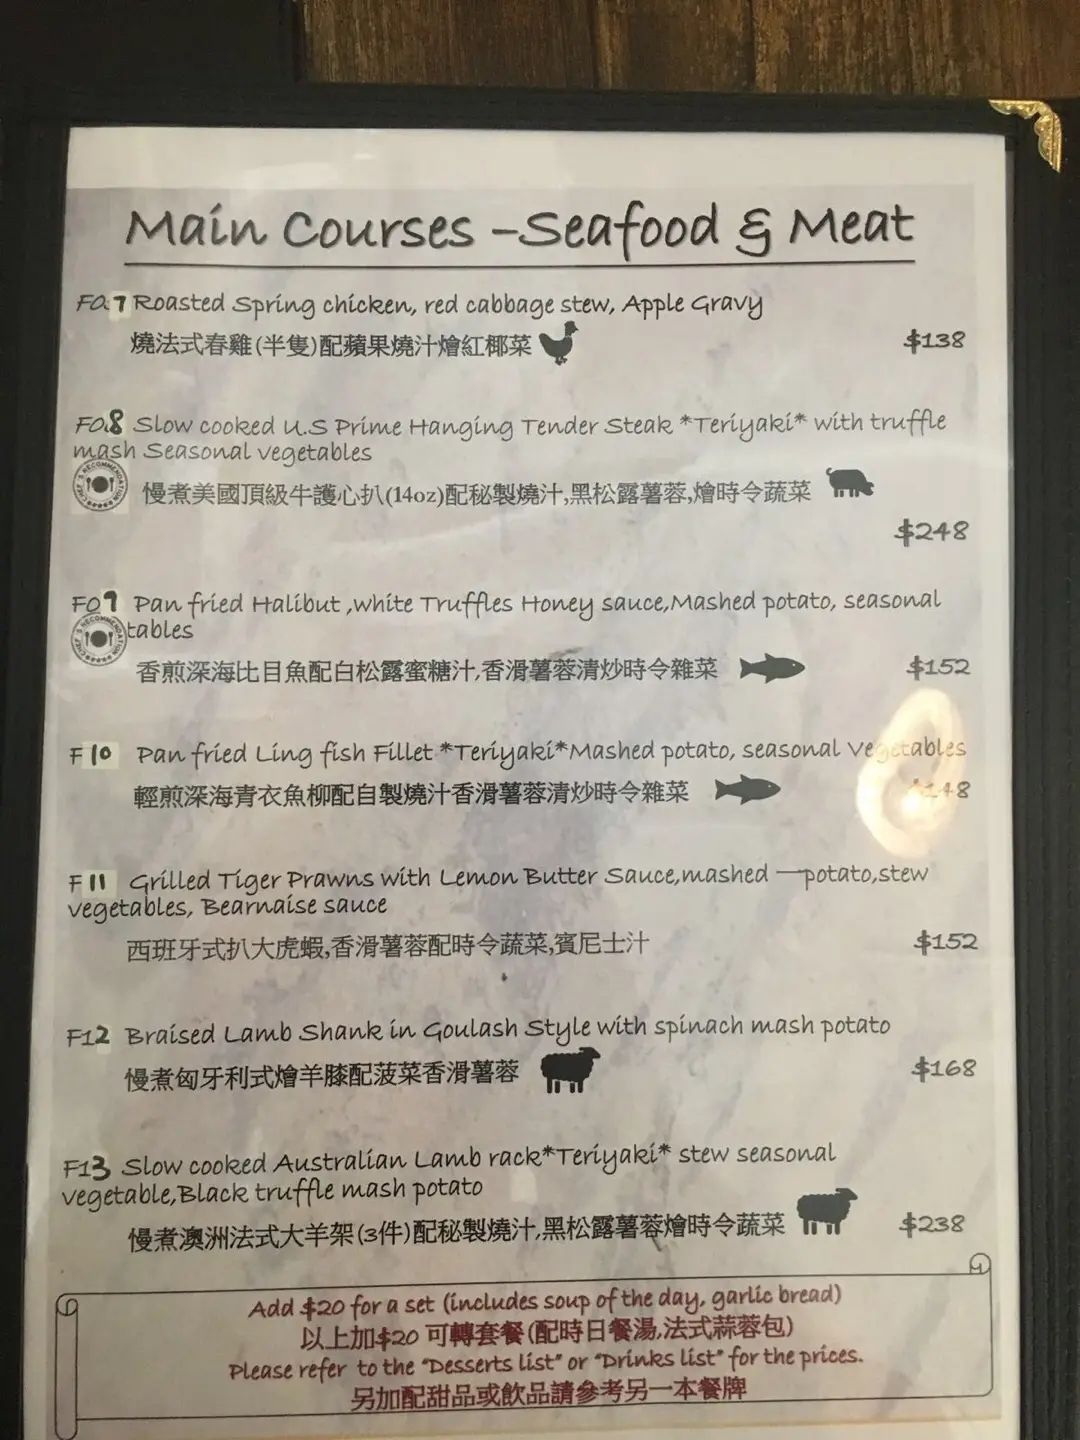 Main Courses -Seafood & Meat
F0.7 Roasted Spring chicken, red cabbage stew, Apple Gravy
燒法式春雞(半隻)配蘋果燒汁燴紅椰菜
$138
F0.8 Slow cooked U.S Prime Hanging Tender Steak *Teriyaki* with truffle
mash Seasonal vegetables
CHEF'S RECOMMENDATION
慢煮美國頂級牛護心扒(14oz)配秘製燒汁,黑松露薯蓉,燴時令蔬菜
$248
F09 Pan fried Halibut ,white Truffles Honey sauce,Mashed potato, seasonal
tables
CHEF'S RECOMMENDATION
香煎深海比目魚配白松露蜜糖汁,香滑薯蓉清炒時令雜菜 $152
F10 Pan fried Ling fish Fillet *Teriyaki*Mashed potato, seasonal Vegetables
輕煎深海青衣魚柳配自製燒汁香滑薯蓉清炒時令雜菜 $148
F11 Grilled Tiger Prawns with Lemon Butter Sauce,mashed —potato,stew
vegetables, Bearnaise sauce
西班牙式扒大虎蝦,香滑薯蓉配時令蔬菜,賓尼士汁 $152
F12 Braised Lamb Shank in Goulash Style with spinach mash potato
慢煮匈牙利式燴羊膝配菠菜香滑薯蓉 $168
F13 Slow cooked Australian Lamb rack*Teriyaki* stew seasonal
vegetable,Black truffle mash potato
慢煮澳洲法式大羊架(3件)配秘製燒汁,黑松露薯蓉燴時令蔬菜 $238
Add $20 for a set (includes soup of the day, garlic bread)
以上加$20 可轉套餐(配時日餐湯,法式蒜蓉包)
Please refer to the "Desserts list" or "Drinks list" for the prices.
另加配甜品或飲品請參考另一本餐牌